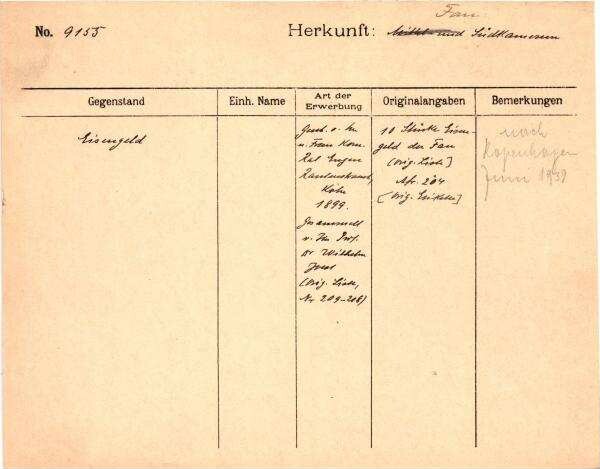 Fan
No. 9155 Herkunft: Mittel- und Südkamerun
Gegenstand Einh. Name Art der Erwerbung Originalangaben Bemerkungen
Eisengeld
Gesch. v. Hn
u. Frau Kom.
Rat Eugen
Rautenstrauch,
Köln
1899.
Gesammelt
v. Hn. Prof.
Dr Wilhelm
Joest
(Orig. Liste,
Nr 209-208)
10 Stücke Eisen-
geld der Fan
(Orig. Liste]
Afr. 204
[Orig. Etikette]
nach
Kopenhagen
Juni 1939